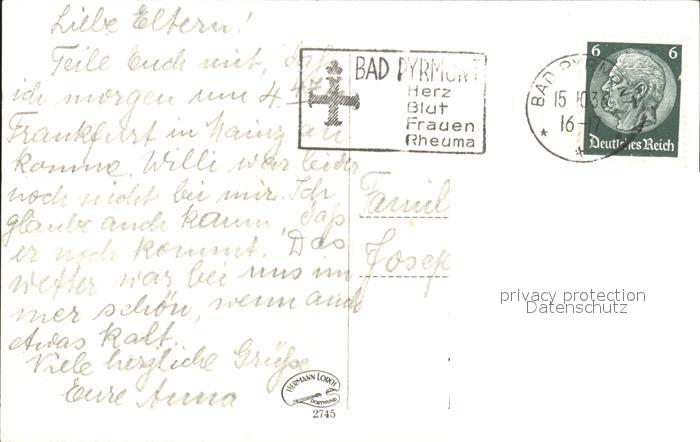 Liebe Eltern!
Teile Euch mit, daß
ich morgen um 4 47
Frankfurt in Mainz an
komme. Willi war leider
noch nicht bei mir. Ich
glaube auch kaum, daß
er noch kommt. Das
wetter war bei uns im
mer schön, wenn auch
etwas kalt.
Viele herzliche Grüße
Eure Anna
BAD PYRMONT
Herz
Blut
Frauen
Rheuma
BAD PYRM
15 10 36
16-17
6 6
Deutsches Reich
Famil
Josep
privacy protection
Datenschutz
HERMANN LORCH
DORTMUND
2745